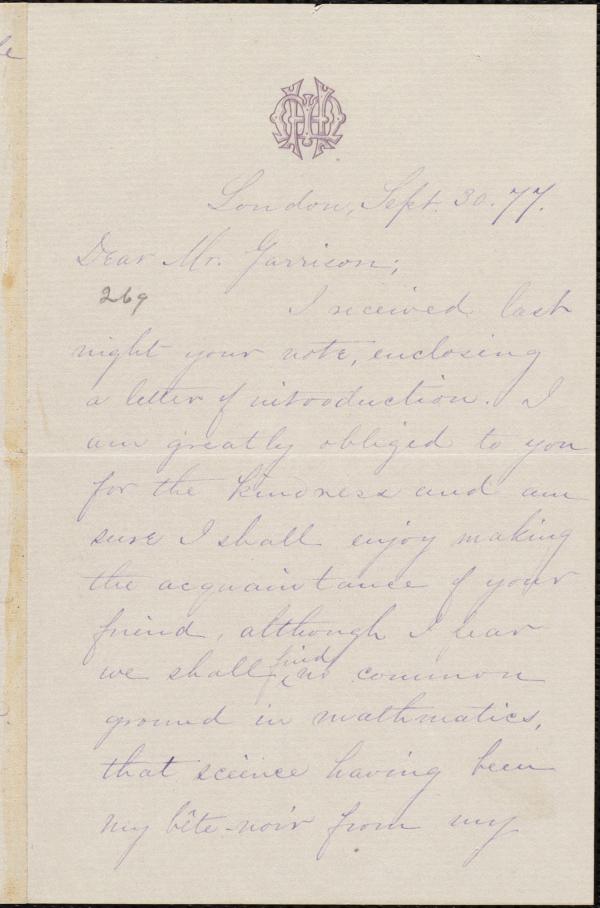 London, Sept. 30. 77.
Dear Mr. Garrison;
269
I received last
night your note, enclosing
a letter of introduction. I
am greatly obliged to you
for the kindness and am
sure I shall enjoy making
the acquaintance of your
friend, although I fear
we shall find no common
ground in mathmatics,
that science having been
my bête-noir from my